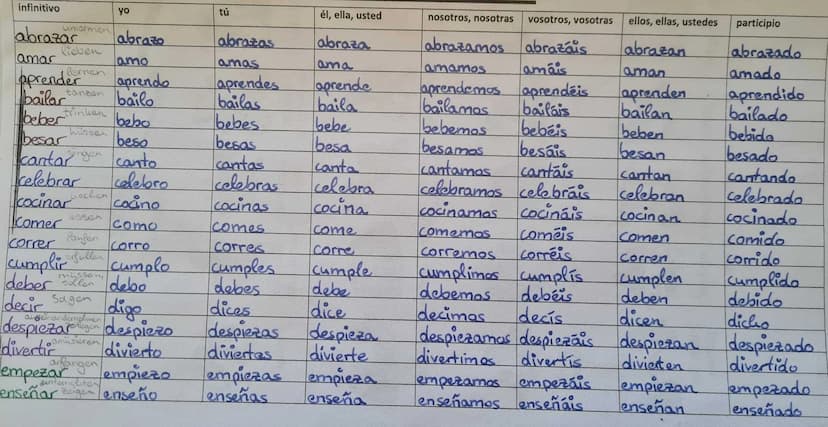 infinitivo yo tú él, ella, usted nosotros, nosotras vosotros, vosotras ellos, ellas, ustedes participio
abrazar umarmen abrazo abrazas abraza abrazamos abrazáis abrazan abrazado
amar lieben amo amas ama amamos amáis aman amado
aprender lernen aprendo aprendes aprende aprendemos aprendéis aprenden aprendido
bailar tanzen bailo bailas baila bailamos bailáis bailan bailado
beber trinken bebo bebes bebe bebemos bebéis beben bebido
besar küssen beso besas besa besamos besáis besan besado
cantar singen canto cantas canta cantamos cantáis cantan cantando
celebrar celebro celebras celebra celebramos celebráis celebran celebrado
cocinar kochen cocino cocinas cocina cocinamos cocináis cocinan cocinado
comer essen como comes come comemos coméis comen comido
correr laufen corro corres corre corremos corréis corren corrido
cumplir erfüllen cumplo cumples cumple cumplimos cumplís cumplen cumplido
deber müssen sollen debo debes debe debemos debéis deben debido
decir sagen digo dices dice decimos decís dicen dicho
despiezar despiezo despiezas despieza despiezamos despiezáis despiezan despiezado
divertir amüsieren divierto diviertes divierte divertimos divertís divierten divertido
empezar anfangen empiezo empiezas empieza empezamos empezáis empiezan empezado
enseñar unterrichten zeigen enseño enseñas enseña enseñamos enseñáis enseñan enseñado